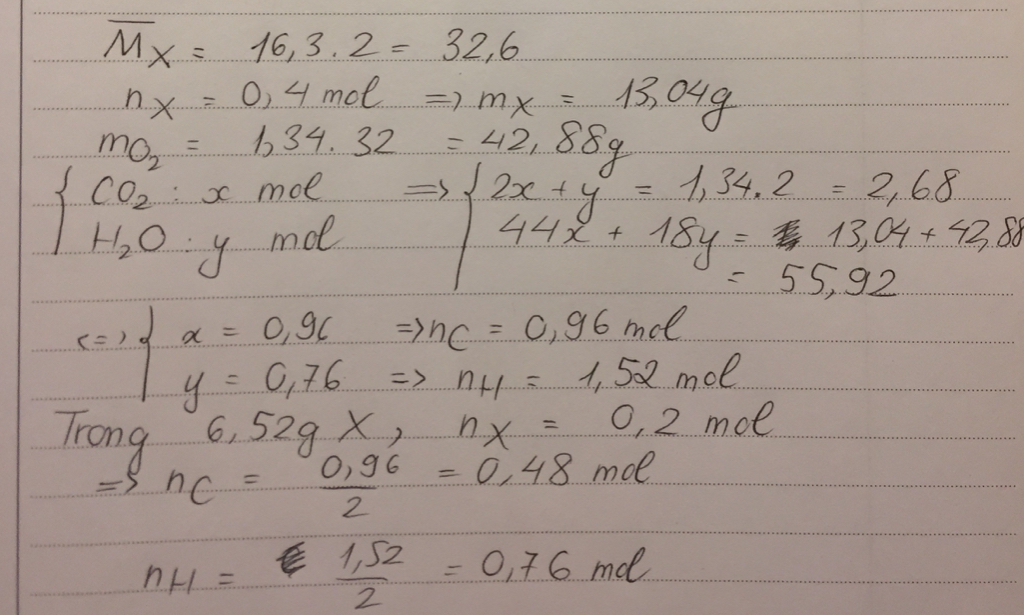 M̅x = 16,3.2 = 32,6
nx = 0,4 mol => mx = 13,04g
mO₂ = 1,34.32 = 42,88g
{ CO₂ : x mol => { 2x + y = 1,34.2 = 2,68
H₂O : y mol 44x + 18y = 13,04 + 42,88
= 55,92
<=> { x = 0,96 => nC = 0,96 mol
y = 0,76 => nH = 1,52 mol
Trong 6,52g X, nX = 0,2 mol
=> nC = 0,96/2 = 0,48 mol
nH = 1,52/2 = 0,76 mol